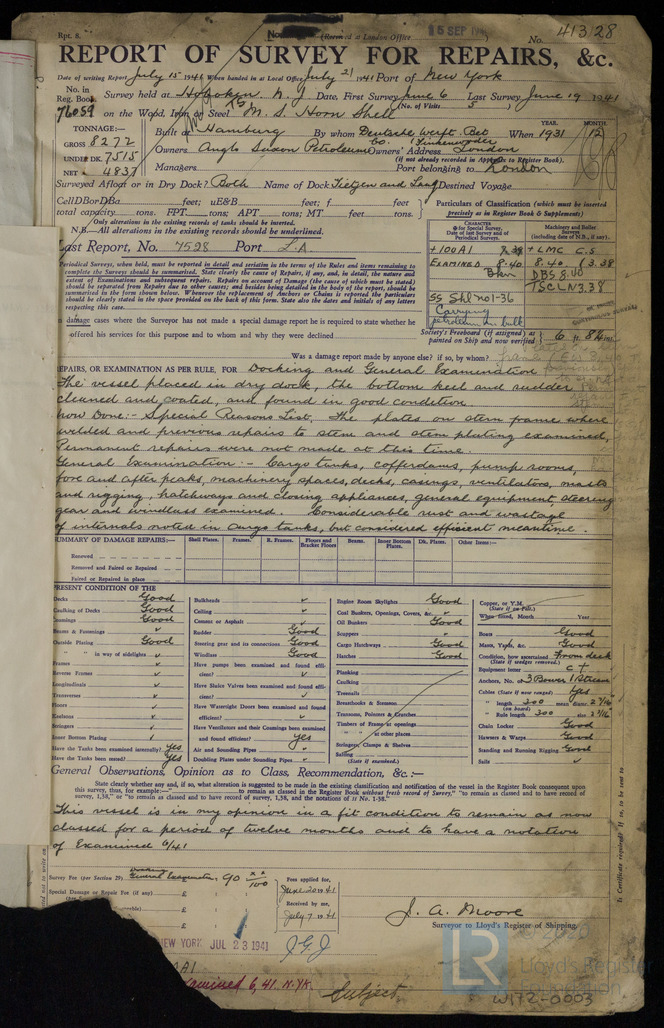 Rpt. 8. (Received at London Office 15 SEP 194 ) No. 41328
REPORT OF SURVEY FOR REPAIRS, &c.
Date of writing Report July 15 1941 When handed in at Local Office July 21 1941 Port of New York
No. in Reg. Book Survey held at Hoboken N.J Date, First Survey June 6 Last Survey June 19 1941
(No. of Visits 5 )
76059 on the Wood, Iron or Steel M.S. Horn Shell
TONNAGE:—
GROSS 8272
UNDER DK. 7515
NET 4837
Built at Hamburg By whom Deutsche Werft. Bet. When 1931 MONTH 12
YEAR. MONTH.
Owners Anglo Saxon Petroleum Co. Owners' Address London
(if not already recorded in Appendix to Register Book).
Managers Port belonging to London
Surveyed Afloat or in Dry Dock? Both Name of Dock Tietjen and Lang Destined Voyage
Cell DBor DBa feet; uE&B feet; f feet
total capacity tons. FPT tons; APT tons; MT feet tons.
Only alterations in the existing records of tanks should be inserted.
N.B.—All alterations in the existing records should be underlined.
Particulars of Classification (which must be inserted
precisely as in Register Book & Supplements)
Last Report, No. 7528 Port L.A.
CHARACTER
for Special Survey,
Date of last Survey and of
Periodical Surveys.
Machinery and Boiler
Surveys
(including date of N.B., if any).
+100A1
+LMC C.S
Examined 8.40
8.40 3.38
DBS 8.40
TSCL N 3.38
SS Shl no1-36
Carrying
petroleum in bulk
Society's Freeboard (if assigned) as
painted on Ship and now verified
Periodical Surveys, when held, must be reported in detail and seriatim in the terms of the Rules and items remaining to
complete the Surveys should be summarised. State clearly the cause of Repairs, if any, and, in detail, the nature and
extent of Examinations and subsequent repairs. Repairs on account of Damage (the cause of which must be stated)
should be separated from Repairs due to other causes; and besides being detailed in the body of the report, should be
summarised in the form shown below. Whenever the replacement of Anchors or Chains is reported the particulars
should be clearly stated in the space provided on the back of this form. State also the dates and initials of any letters
respecting this case.
In damage cases where the Surveyor has not made a special damage report he is required to state whether he
offered his services for this purpose and to whom and why they were declined
Was a damage report made by anyone else? if so, by whom?
REPAIRS, OR EXAMINATION AS PER RULE, FOR Docking and General Examination
The vessel placed in dry dock, the bottom keel and rudder
cleaned and coated, and found in good condition.
Now Done:- Special Reasons List, The plates on stem frame where
welded and previous repairs to stem and stem plating examined,
Permanent repairs were not made at this time.
General Examination:- Cargo tanks, cofferdams, pump rooms,
fore and after peaks, machinery spaces, decks, casings, ventilators, masts
and rigging, hatchways and closing appliances, general equipment, steering
gear and windlass examined. Considerable rust and wastage
of internals noted in cargo tanks, but considered efficient meantime.
SUMMARY OF DAMAGE REPAIRS:—
Shell Plates. Frames. R. Frames. Floors and Bracket Floors Beams. Inner Bottom Plates. Dk. Plates. Other Items:—
Renewed
Removed and Faired or Repaired
Faired or Repaired in place
PRESENT CONDITION OF THE
Decks Good
Caulking of Decks Good
Coamings Good
Beams & Fastenings ✓
Outside Plating Good
" " in way of sidelights ✓
Frames ✓
Reverse Frames ✓
Longitudinals ✓
Transverses ✓
Floors ✓
Keelsons ✓
Stringers
Inner Bottom Plating
Have the Tanks been examined internally? Yes
Have the Tanks been tested? Yes
Bulkheads ✓
Ceiling ✓
Cement or Asphalt ✓
Rudder Good
Steering gear and its connections Good
Windlass Good
Have pumps been examined and found efficient? ✓
Have Sluice Valves been examined and found efficient? ✓
Have Watertight Doors been examined and found efficient? ✓
Have Ventilators and their Coamings been examined
and found efficient? Yes
Air and Sounding Pipes ✓
Doubling Plates under Sounding Pipes ✓
Engine Room Skylights Good
Coal Bunkers, Openings, Covers, &c. ✓
Oil Bunkers Good
Scuppers ✓
Cargo Hatchways Good
Hatches Good
Planking
Caulking
Treenails
Breasthooks & Stemson
Transoms, Pointers & Crutches
Timbers of Frame at openings
" " at other places
Stringers, Clamps & Shelves
Salting
(State if examined.)
Copper, or Y.M.
(State if on Felt.)
When fitted, Month Year
Boats Good
Masts, Yards, &c. Good
Condition, how ascertained From deck
(State if wedges removed.)
Equipment letter C+
Anchors, No. of 3 Bower 1 Stream
Cables (State if now ranged) Yes
" length 300 mean diamr. 2 7/16
(on board)
" Rule length 300 size 2 7/16
Chain Locker Good
Hawsers & Warps Good
Standing and Running Rigging Good
Sails ✓
General Observations, Opinion as to Class, Recommendation, &c.:—
State clearly whether any, and if so, what alteration is suggested to be made in the existing classification and notification of the vessel in the Register Book consequent upon
this survey, thus, for example:—
This vessel is in my opinion in a fit condition to remain as now
classed for a period of twelve months and to have a notation
of Examined 6/41
Survey Fee (per Section 29) General Examination 90 xx/100
Special Damage or Repair Fee (if any) £
Fees applied for,
June 20 1941
Received by me,
July 7 1941
J.G.J
J. A. Moore
Surveyor to Lloyd's Register of Shipping.
NEW YORK JUL 23 1941
Examined 6, 41 N.Yk.
Subject
Is Certificate required? If so, to be sent to
LR
Lloyd's Register
Foundation
W172-0003